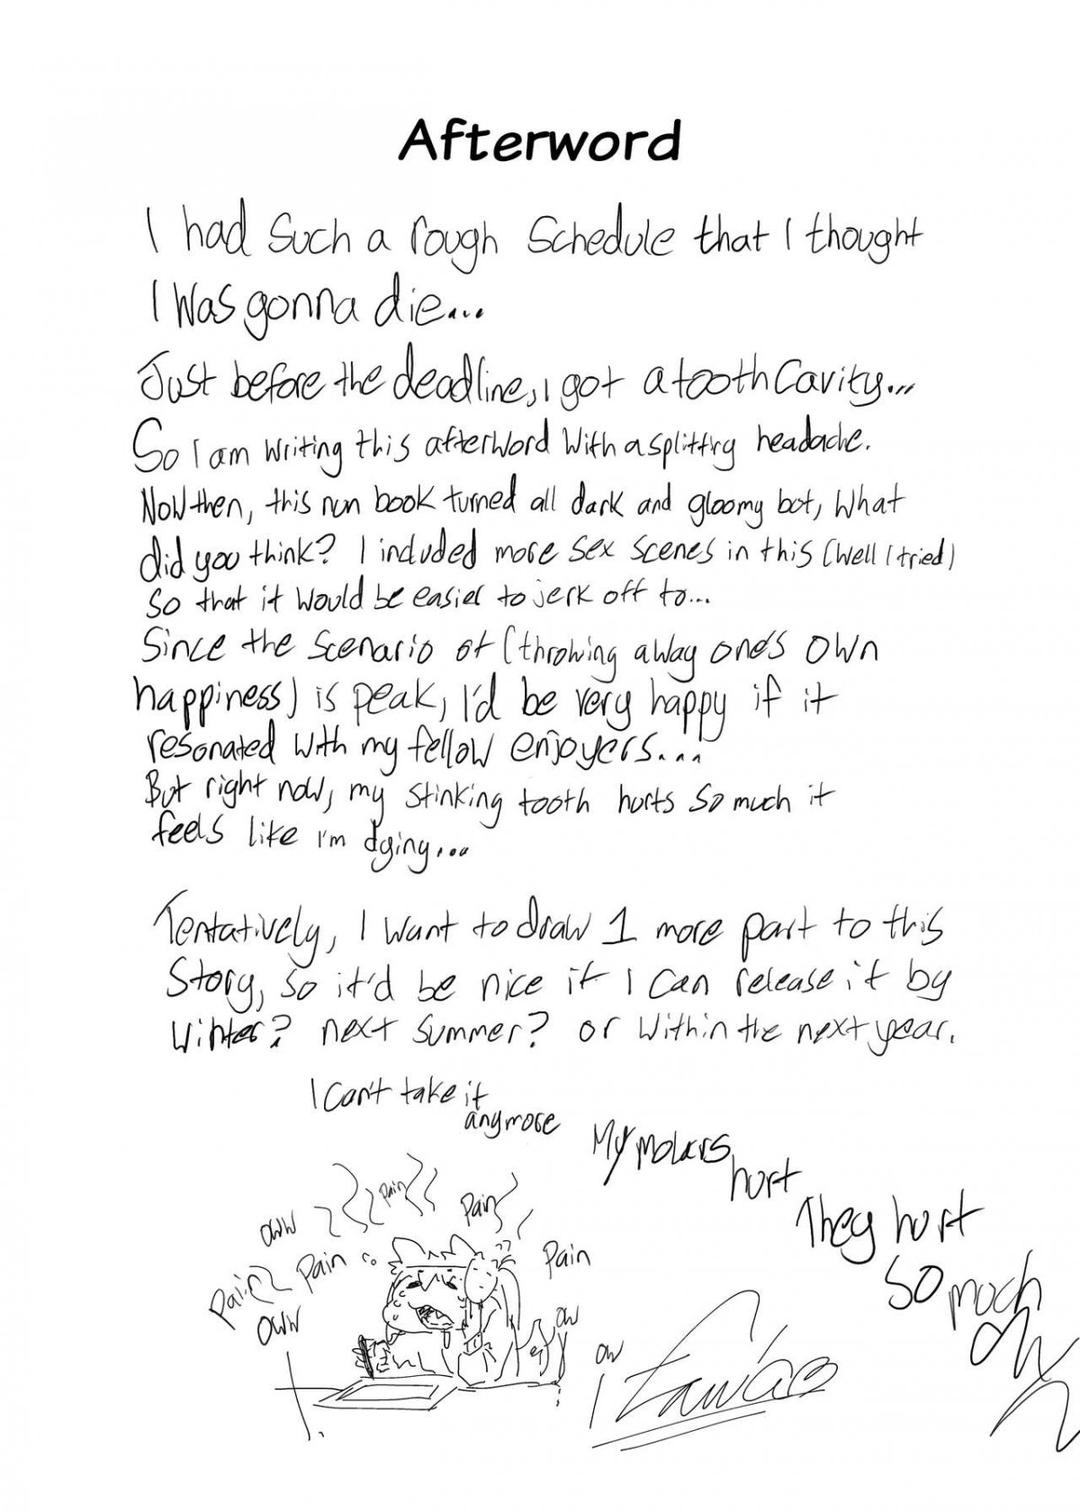 Afterword
I had such a rough schedule that I thought
I was gonna die...
Just before the deadline, I got a tooth cavity...
So I am writing this afterword with a splitting headache.
Now then, this nun book turned all dark and gloomy but, what
did you think? I included more sex scenes in this (well I tried)
so that it would be easier to jerk off to...
Since the scenario of (throwing away one's own
happiness) is peak, I'd be very happy if it
resonated with my fellow enjoyers...
But right now, my stinking tooth hurts so much it
feels like I'm dying...
Tentatively, I want to draw 1 more part to this
story, so it'd be nice if I can release it by
winter? next summer? or within the next year.
I can't take it
anymore
My molars
hurt
They hurt
so much
ow
Pain
Pain
oww
Pain
Pain
Pain
oww
ow
ow